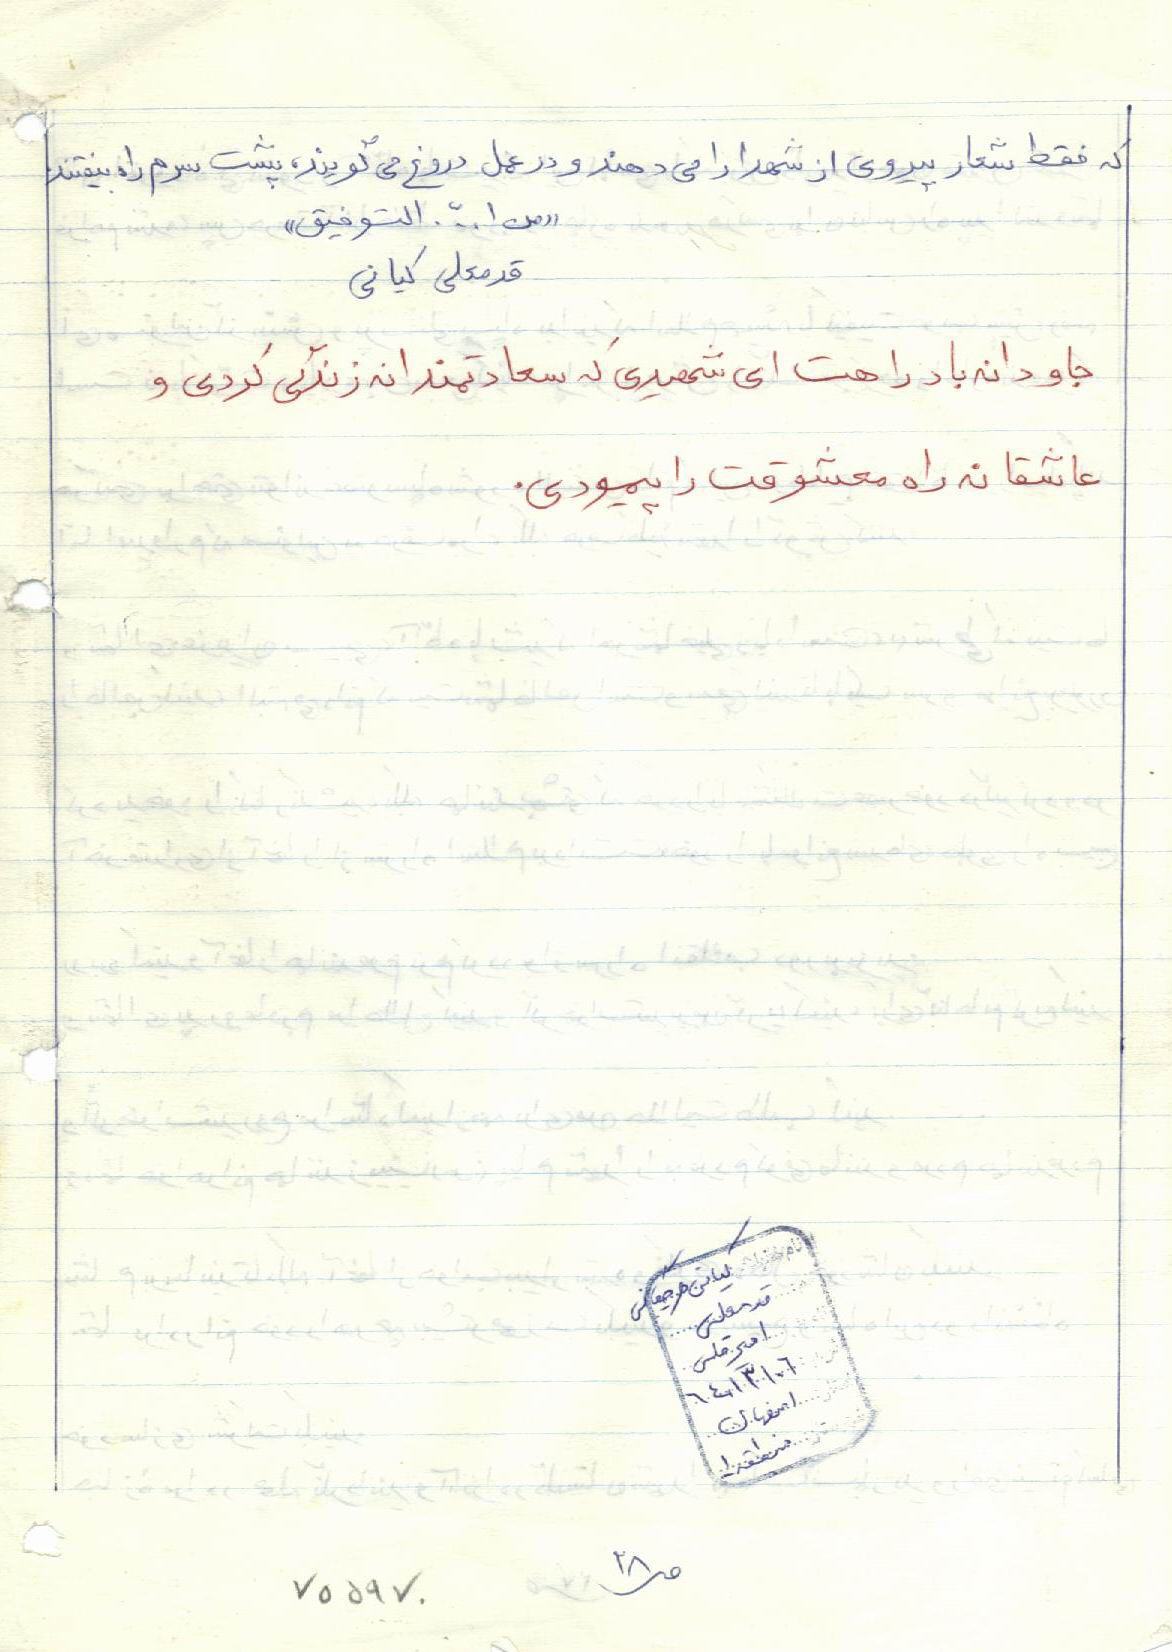 که فقط شعار پیروی از شهدا را می دهند و در عمل دروغ می گویند، پشت سرم راه بیفتند
«من ا... التوفیق»
قدمعلی کیانی
جاودانه باد راهت ای شهیدی که سعادتمندانه زندگی کردی و
عاشقانه راه معشوقت را پیمودی.
کیانی هرچگانی
قدمعلی
امیرقلی
اصفهان
ص ۲۸
۷۵۵۹۷۰